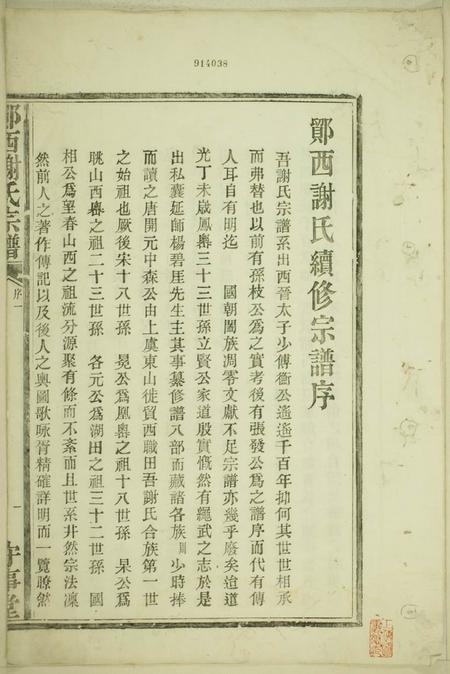 914038
鄮西謝氏續修宗譜序
吾謝氏宗譜系出西晉太子少傅衡公遙遙千百年抑何其世世相承
而弗替也以前有孫枝公為之實考後有張發公為之譜序而代有傳
人耳自有明迄 國朝闔族凋零文獻不足宗譜亦幾乎廢矣迨道
光丁未歲鳳嶴三十三世孫立賢公家道殷實慨然有繩武之志於是
出私囊延師楊碧厓先生主其事纂修譜八部而藏諸各族 少時捧
而讀之唐開元中森公由上虞東山徙貿西職田吾謝氏合族第一世
之始祖也厥後宋十八世孫 冕公為鳳嶴之祖十八世孫 杲公為
眺山西嶴之祖二十三世孫 各元公為湖田之祖三十二世孫 國
相公為望春山西之祖流分源聚有條而不紊而且世系井然宗法凜
然前人之著作傳記以及後人之輿圖歌咏胥精確詳明而一覽瞭然
鄮西謝氏宗譜
序一